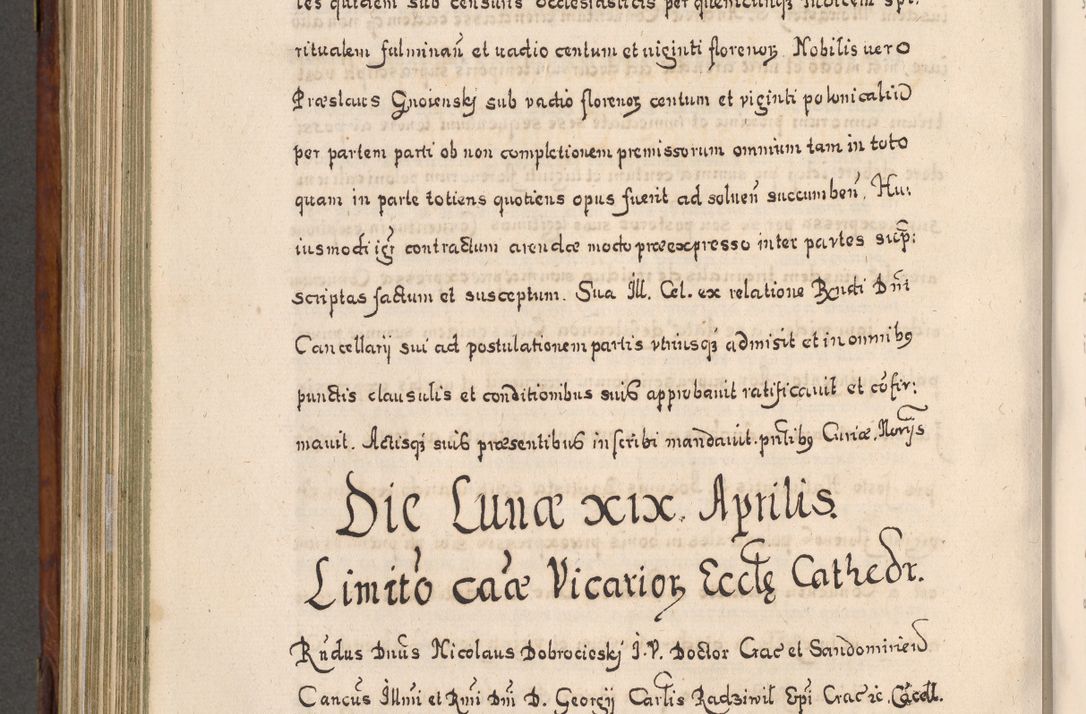 les quidem sub censuris Ecclesiasticis per quemcunq̃ Iudicem spi:
ritualem fulminañ et uadio centum et uiginti florenoꝝ. Nobilis uero
Præslaus Gnoienskj sub vadio florenoꝝ centum et viginti polonicaliũ
per partem parti ob non completionem premissorum omnium tam in toto
quam in parte totiens quotiens opus fuerit ad soluen̄ succumben̄. Hu:
iusmodi ig̃r contractum arendæ modo præexpresso inter partes sup̃:
scriptas factum et susceptum. Sua Ill. Cel. ex relatione Rn̄di Dn̄i
Cancellarij sui ad postulationem partis vtriusq̃ admisit et in omnibꝯ
punctis clausulis et conditionibus suis approbauit ratificauit et cõfir:
mauit. Actisq̃ suis præsentibus inscribi mandauit. pn̄tibꝯ Curiæ. Norijs
Die Lunæ XIX. Aprilis.
Limito caæ Vicarioꝝ Eccłę Cathedr.
Rn̄dus Dn̄us Nicolaus Dobrocieskj I. V. Doctor Crac et Sandomirien̄
Cancus Illmi et Rmi Dn̄i D. Georgij Carłis Radziwil Ep̄i Crac ic. Cãcell.